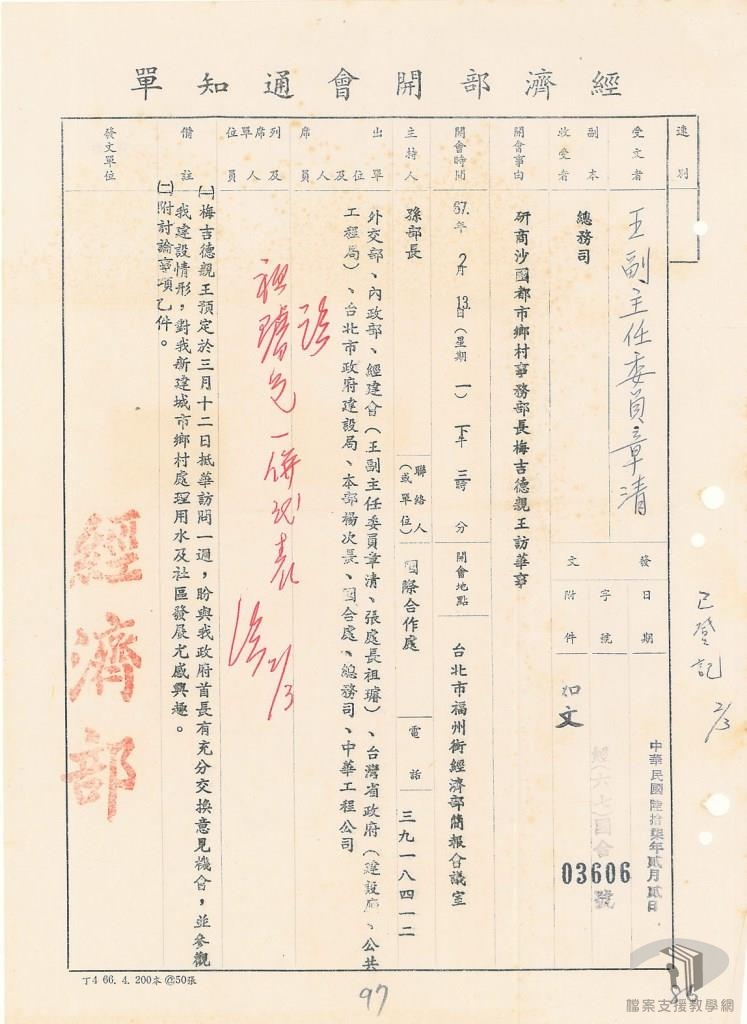 經濟部開會通知單
速別
受文者
王副主任委員章清
副本
收受者
總務司
發文
日期
中華民國陸拾柒年貳月貳日
字號
經(六七)國合
03606
號
附件
如文
開會事由
研商沙國都市鄉村事務部長梅吉德親王訪華事
開會時間
67.年2月13.日(星期一)下午三時 分
開會地點
台北市福州街經濟部簡報會議室
主持人
孫部長
聯絡人
(或單位)
國際合作處
電話
三九一八四一二
出席
單位及人員
外交部、內政部、經建會(王副主任委員章清、張處長祖璿)、台灣省政府(建設廳、公共
工程局)、台北市政府建設局、本部楊次長、國合處、總務司、中華工程公司
列席
單位及人員
備註
㈠梅吉德親王預定於三月十二日抵華訪問一週,盼與我政府首長有充分交換意見機會,並參觀
我建設情形,對我新建城市鄉村處理用水及社區發展尤感興趣。
㈡附討論事項乙件。
發文單位
經濟部
祖璿兄一併代表
2/3
已登記 2/3
丁4 66. 4. 200本@50張
97
86
檔案支援教學網